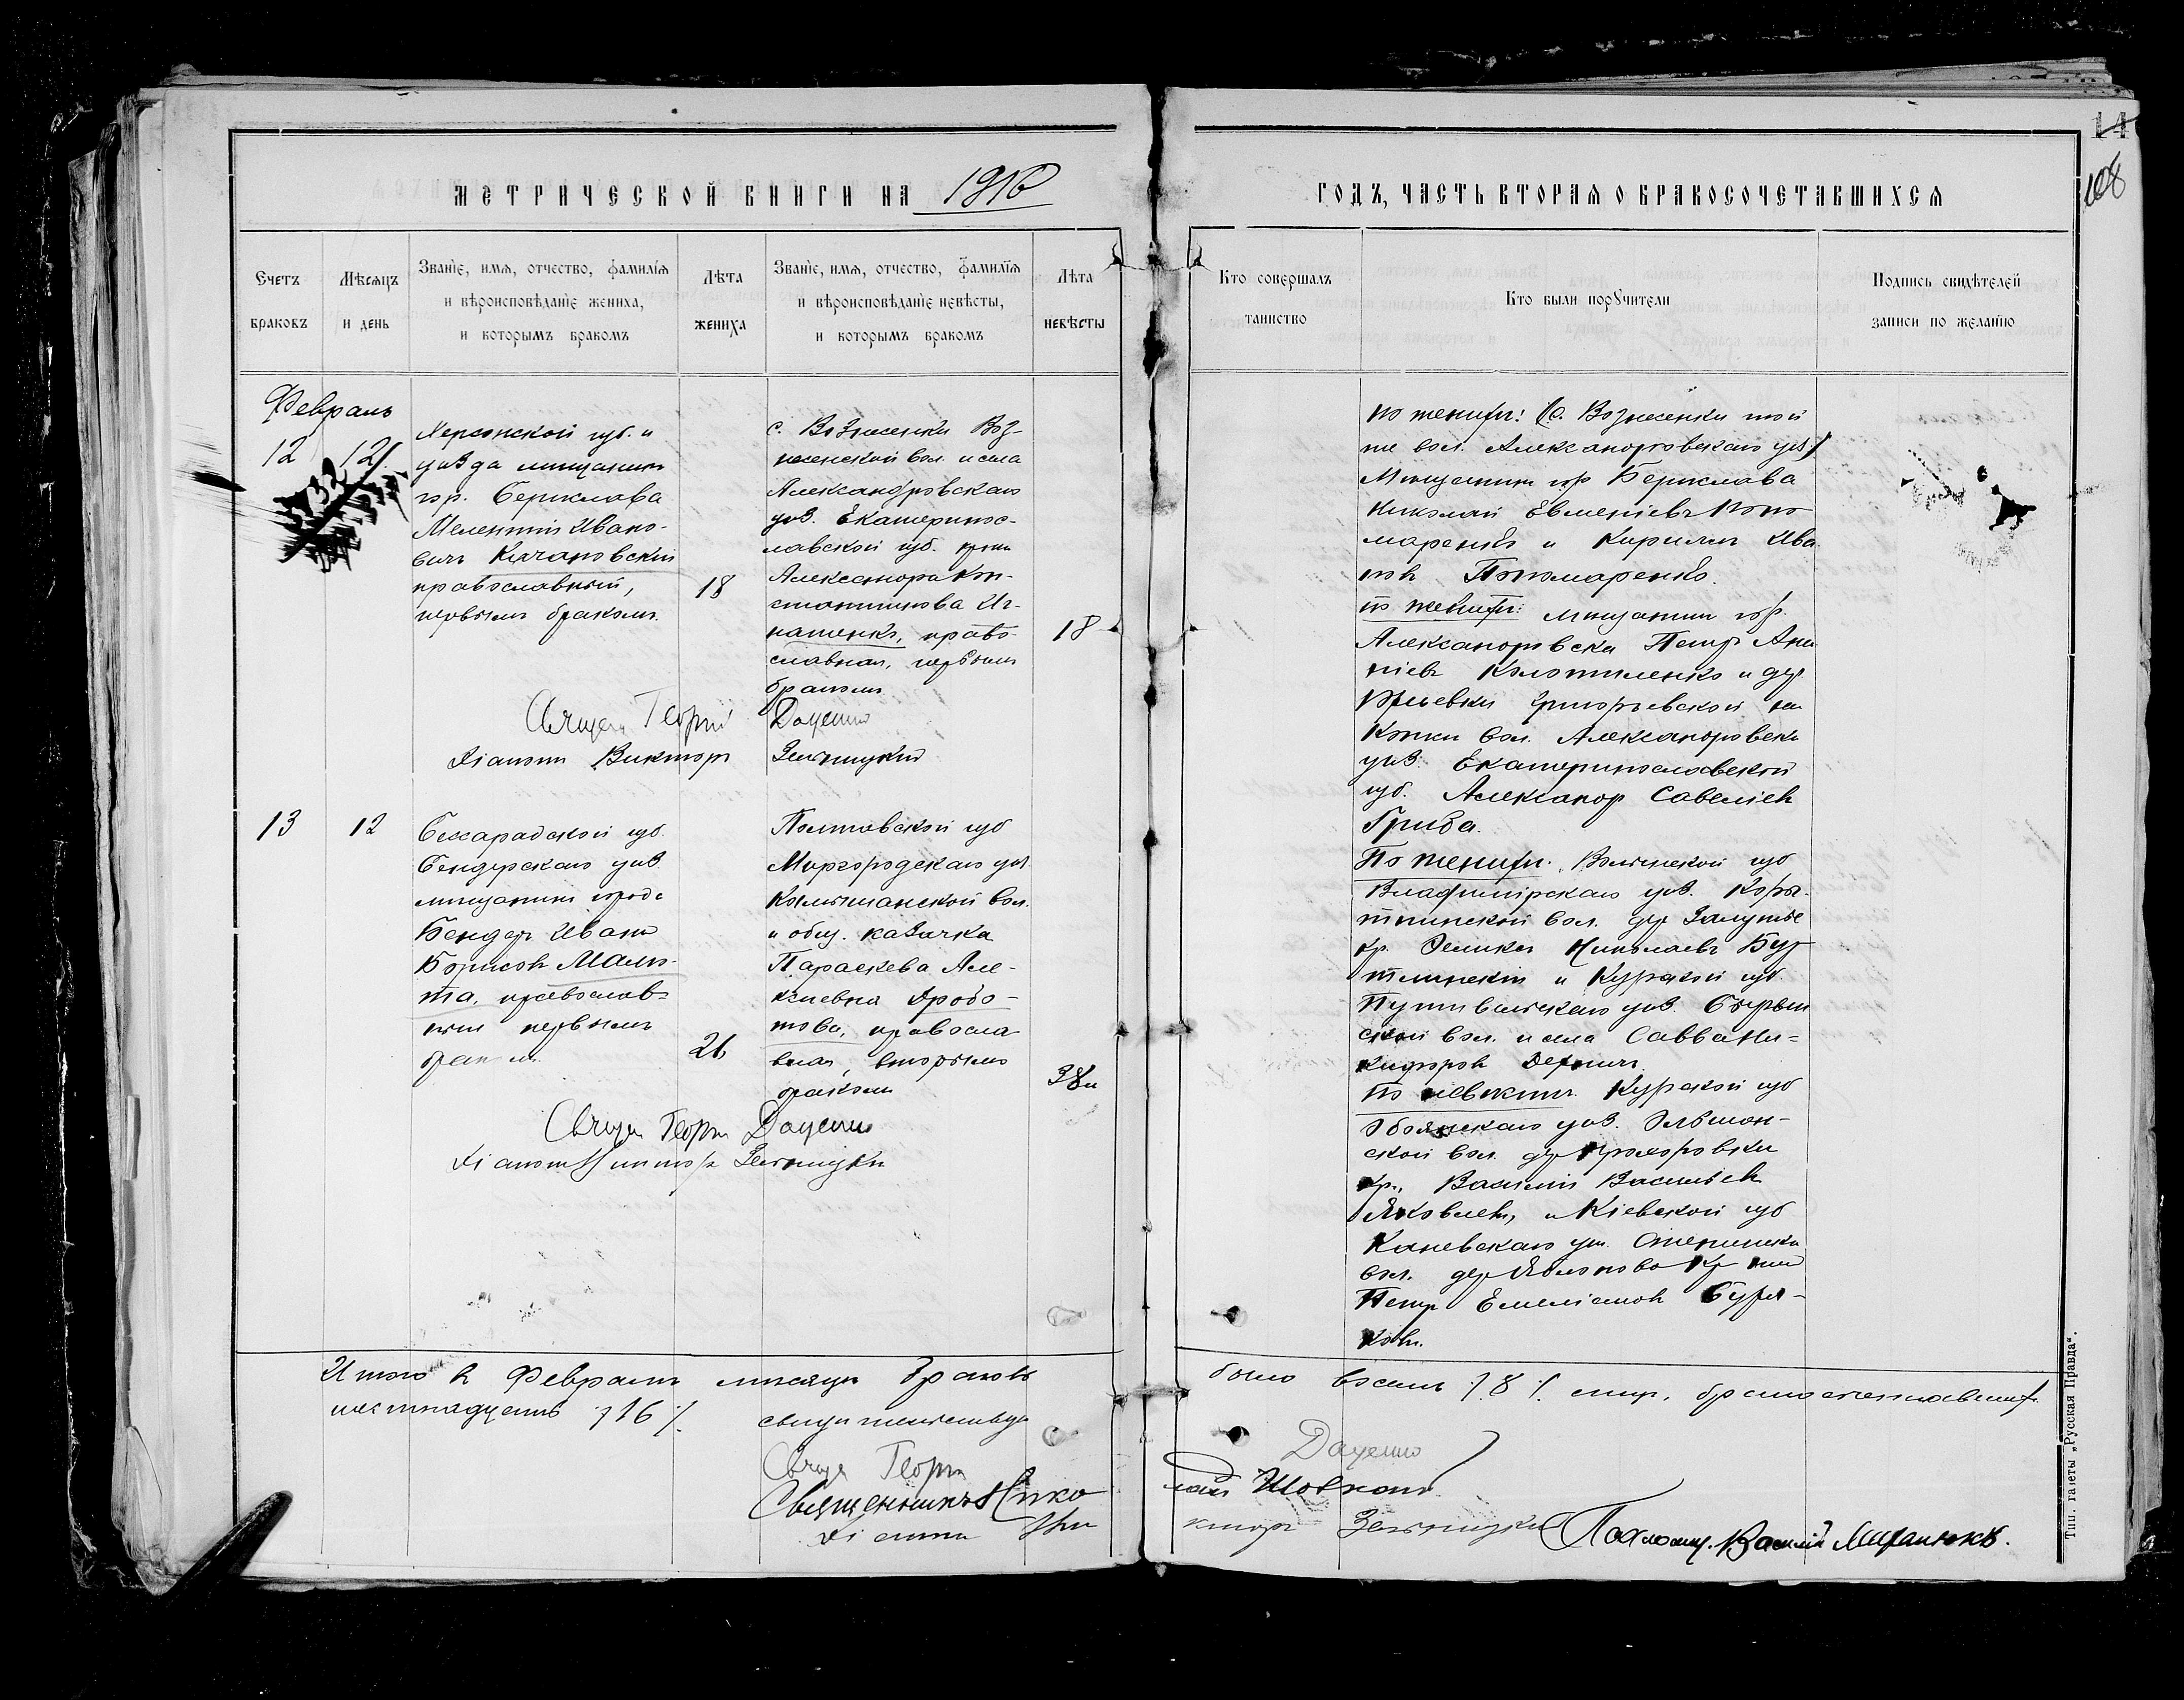 14
108
МЕТРИЧЕСКОЙ КНИГИ НА 1916
ГОДЪ, ЧАСТЬ ВТОРАЯ О БРАКОСОЧЕТАВШИХСЯ
Счетъ браковъ
Мѣсяцъ и день
Званіе, имя, отчество, фамилія и вѣроисповѣданіе жениха, и которымъ бракомъ
Лѣта жениха
Званіе, имя, отчество, фамилія и вѣроисповѣданіе невѣсты, и которымъ бракомъ
Лѣта невѣсты
Кто совершалъ таинство
Кто были поручители
Подпись свидѣтелей записи по желанію
Февраль
12
12
Херсонской губ. и
уѣзда мѣщанинъ
гор. Берислава
Мелентій Ивано-
вичъ Качановскій
православный,
первымъ бракомъ.
18
с. Вознесенки Воз-
несенской вол. и села
Александровскаго
уѣз. Екатеринос-
лавской губ. крест.
Александра Кон-
стантинова Иг-
натенкъ, право-
славная, первымъ
бракомъ
18
Священ Георгій Даценко
Діаконъ Викторъ Зельницкій
по женихѣ: с. Вознесенки той
же вол. Александровскаго уѣз.
Мѣщанинъ гор Берислава
Николай Евменіевъ Поно
маренко и Кириллъ Ива
новъ Пономаренко.
по женихѣ: мѣщанинъ гор.
Александровска Петръ Ана
ніевъ Колотиленко и дер
Юльевки Григорьевской
Конки вол. Александровска
уѣз. Екатеринославской
губ. Александр Савеліевъ
Гриба.
13
12
Бессарабской губ.
Бендерскаго уѣз.
мѣщанинъ города
Бендеръ Иванъ
Борисовъ Мало-
та, православ-
ный первымъ
браком.
26
Полтавской губ
Миргородскаго уѣз.
Комышанской вол.
и общ. казачка
Параскева Але-
ксѣевна Дробо-
това, правосла
вная, вторымъ
бракомъ
38
Священ Георгій Даценко
Діаконъ Викторъ Зельницкій
По женихѣ. Волынской губ
Владимірскаго уѣз. Коры-
тнинской вол. дер Залужье
кр. Феликсъ Николаевъ Бур
тлинскій и Курской губ.
Путивльскаго уѣз.
ской вол. и села Савва Ни-
кифоровъ
по невѣстѣ. Курской губ
Обоянскаго уѣз.
ской вол. дер Прохоровки
кр. Василій Васильевъ
Яковлевъ, и Кіевской губ
Каневскаго уѣз. Степанецкой
вол. дер Яблоново кр
Петръ Емеліановъ Буря-
ковъ.
Итого въ Февралѣ мѣсяцѣ браковъ
было восемь /8/ лиц. бракосочетавших.
шестнадцать /16/.
свидѣтельствуемъ
Священ Георгій Даценко
Священникъ Николай
Діаконъ Викторъ Зельницкій
Псаломщ. Василій
Тип. газеты „Русская Правда“.